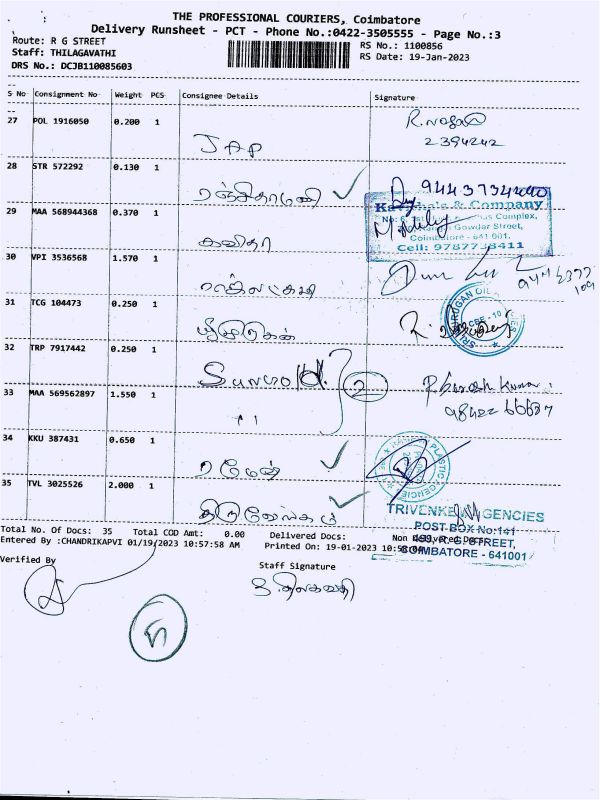 THE PROFESSIONAL COURIERS, Coimbatore
Delivery Runsheet - PCT - Phone No.:0422-3505555 - Page No.:3
Route: R G STREET
RS No.: 1100856
Staff: THILAGAVATHI
RS Date: 19-Jan-2023
DRS No.: DCJB110085603
S No Consignment No Weight PCS Consignee Details Signature
27 POL 1916050 0.200 1 JAP
2394242
28 STR 572292 0.130 1 ரஞ்சிதாமணி
& Company
Complex,
Gowder Street,
Coimbatore - 641 001.
Cell: 9787738411
29 MAA 568944368 0.370 1 கவிதா
30 VPI 3536568 1.570 1
31 TCG 104473 0.250 1 ஸ்ரீமுருகன்
SRI MURUGAN OIL
CBE - 10
32 TRP 7917442 0.250 1 2
33 MAA 569562897 1.550 1 "
34 KKU 387431 0.650 1 ரமேஷ்
PLASTIC AGENCIES
35 TVL 3025526 2.000 1 திருவேங்கடம்
TRIVENKE AGENCIES
POST BOX No:141
499, R. G. STREET,
COIMBATORE - 641001
Total No. Of Docs: 35 Total COD Amt: 0.00 Delivered Docs: Non Delivered Docs:
Entered By :CHANDRIKAPVI 01/19/2023 10:57:58 AM Printed On: 19-01-2023
Verified By
Staff Signature